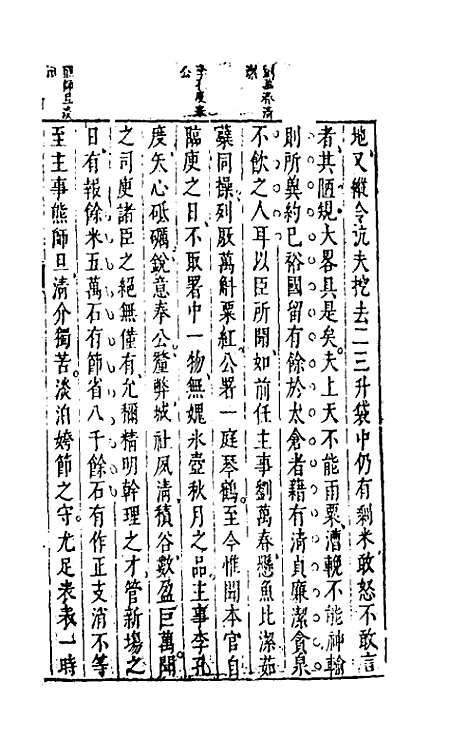 劉萬春清
李孔度奉
公
熊師旦淡
泊
地又縱令沆夫挖去二三升袋中仍有剩米敢怒不敢言
者其陋規大畧具是矣夫上天不能雨粟漕輓不能神輸
則所冀約已裕國留有餘於太倉者藉有清貞廉潔貪泉
不飲之人耳以臣所聞如前任主事劉萬春懸魚比潔茹
蘗同操列厫萬斛粟紅公署一庭琴鶴至今惟聞本官自
臨庾之日不取署中一物無媿氷壺秋月之品主事李孔
度矢心砥礪銳意奉公釐弊城社風清積谷數盈巨萬聞
之司庾諸臣之絕無僅有允稱精明幹理之才管新場之
日有報餘米五萬石有節省八千餘石有作正支消不等
至主事熊師旦清介獨苦淡泊姱節之守尤足表表一時